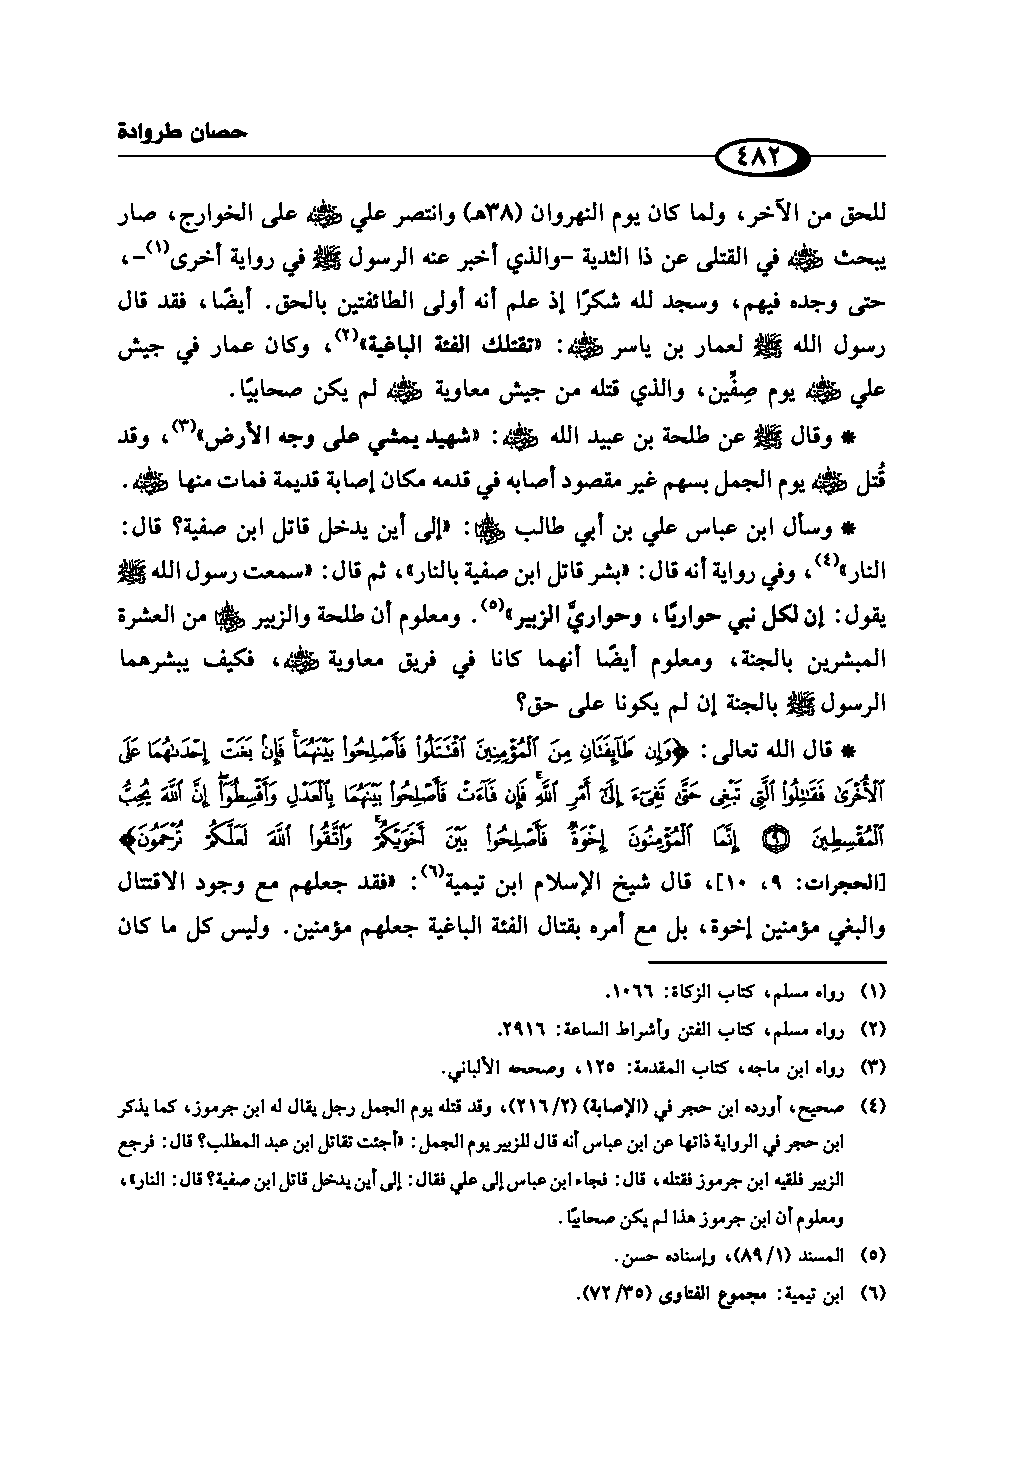 حصان طروادة
٤٨٢
للحق من الآخر، ولما كان يوم النهروان (٣٨هـ) وانتصر علي رضي الله عنه على الخوارج، صار
يبحث رضي الله عنه في القتلى عن ذا الثدية -والذي أخبر عنه الرسول ﷺ في رواية أخرى(١)-،
حتى وجده فيهم، وسجد لله شكرًا إذ علم أنه أولى الطائفتين بالحق. أيضًا، فقد قال
رسول الله ﷺ لعمار بن ياسر رضي الله عنه: «تقتلك الفئة الباغية»(٢)، وكان عمار في جيش
علي رضي الله عنه يوم صِفِّين، والذي قتله من جيش معاوية رضي الله عنه لم يكن صحابيًا.
* وقال ﷺ عن طلحة بن عبيد الله رضي الله عنه: «شهيد يمشي على وجه الأرض»(٣)، وقد
قُتل رضي الله عنه يوم الجمل بسهم غير مقصود أصابه في قدمه مكان إصابة قديمة فمات منها رضي الله عنه.
* وسأل ابن عباس علي بن أبي طالب رضي الله عنهما: «إلى أين يدخل قاتل ابن صفية؟ قال:
النار»(٤)، وفي رواية أنه قال: «بشر قاتل ابن صفية بالنار»، ثم قال: «سمعت رسول الله ﷺ
يقول: إن لكل نبي حواريًا، وحواريَّ الزبير»(٥). ومعلوم أن طلحة والزبير رضي الله عنهما من العشرة
المبشرين بالجنة، ومعلوم أيضًا أنهما كانا في فريق معاوية رضي الله عنه، فكيف يبشرهما
الرسول ﷺ بالجنة إن لم يكونا على حق؟
* قال الله تعالى: ﴿وَإِن طَآئِفَتَانِ مِنَ ٱلْمُؤْمِنِينَ ٱقْتَتَلُوا۟ فَأَصْلِحُوا۟ بَيْنَهُمَا ۖ فَإِنۢ بَغَتْ إِحْدَىٰهُمَا عَلَى
ٱلْأُخْرَىٰ فَقَـٰتِلُوا۟ ٱلَّتِى تَبْغِى حَتَّىٰ تَفِىٓءَ إِلَىٰٓ أَمْرِ ٱللَّهِ ۚ فَإِن فَآءَتْ فَأَصْلِحُوا۟ بَيْنَهُمَا بِٱلْعَدْلِ وَأَقْسِطُوٓا۟ ۖ إِنَّ ٱللَّهَ يُحِبُّ
ٱلْمُقْسِطِينَ ٩ إِنَّمَا ٱلْمُؤْمِنُونَ إِخْوَةٌ فَأَصْلِحُوا۟ بَيْنَ أَخَوَيْكُمْ ۚ وَٱتَّقُوا۟ ٱللَّهَ لَعَلَّكُمْ تُرْحَمُونَ﴾
[الحجرات: ٩، ١٠]، قال شيخ الإسلام ابن تيمية(٦): «فقد جعلهم مع وجود الاقتتال
والبغي مؤمنين إخوة، بل مع أمره بقتال الفئة الباغية جعلهم مؤمنين. وليس كل ما كان
(١) رواه مسلم، كتاب الزكاة: ١٠٦٦.
(٢) رواه مسلم، كتاب الفتن وأشراط الساعة: ٢٩١٦.
(٣) رواه ابن ماجه، كتاب المقدمة: ١٢٥، وصححه الألباني.
(٤) صحيح، أورده ابن حجر في (الإصابة) (٢/ ٢١٦)، وقد قتله يوم الجمل رجل يقال له ابن جرموز، كما يذكر
ابن حجر في الرواية ذاتها عن ابن عباس أنه قال للزبير يوم الجمل: «أجئت تقاتل ابن عبد المطلب؟ قال: فرجع
الزبير فلقيه ابن جرموز فقتله، قال: فجاء ابن عباس إلى علي فقال: إلى أين يدخل قاتل ابن صفية؟ قال: النار»،
ومعلوم أن ابن جرموز هذا لم يكن صحابيًا.
(٥) المسند (١/ ٨٩)، وإسناده حسن.
(٦) ابن تيمية: مجموع الفتاوى (٣٥/ ٧٢).